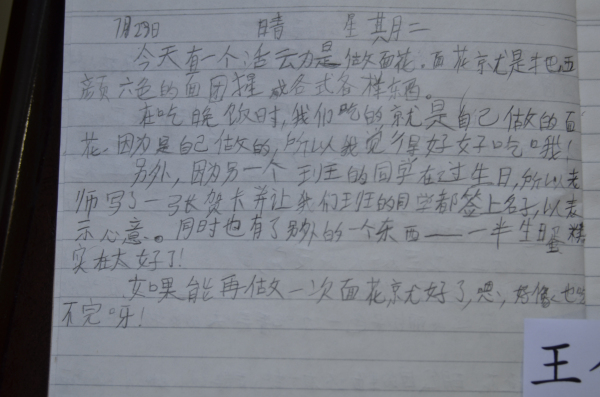 7月29日 晴 星期二
今天有一个活动是做面花。面花就是把五
颜六色的面团捏成各式各样东西。
在吃晚饭时，我们吃的就是自己做的面
花。因为是自己做的，所以我觉得好好吃哦！
另外，因为另一个班的同学在过生日，所以老
师写了一张贺卡并让我们班的同学都签上名字，以表
示心意。同时也有了另外的一个东西——一半生日蛋糕
实在太好了！
如果能再做一次面花就好了，嗯，好像也
不完呀！
王